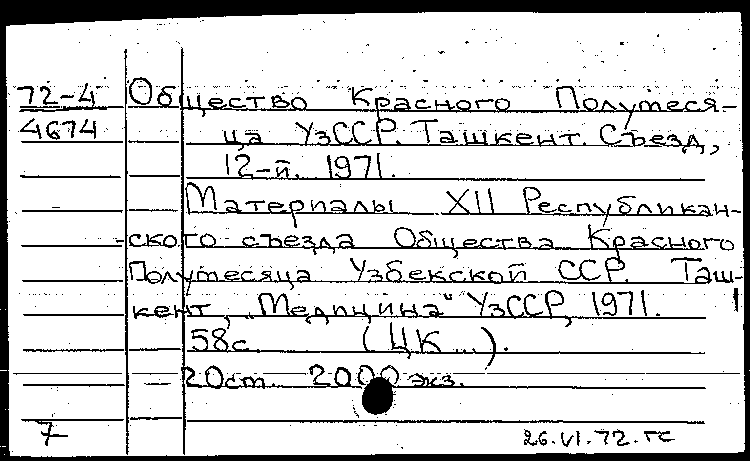 72-4 Общество Красного Полумеся-
4674 ца УзССР. Ташкент. Съезд,
12-й. 1971.
Материалы XII Республикан-
ского съезда Общества Красного
Полумесяца Узбекской ССР. Таш-
кент, „Медицина" УзССР, 1971.
58с. (ЦК...).
— 20см. 2000 экз.
7 26.VI.72. гс